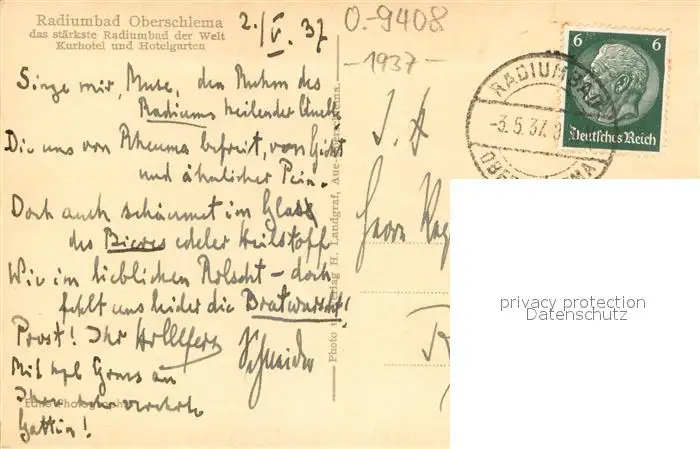 Radiumbad Oberschlema
das stärkste Radiumbad der Welt
Kurhotel und Hotelgarten
2./V. 37
O.-9408
-1937-
Singe mir, Muse, den Ruhm des
Radiums heilender Quelle
Die uns von Rheuma befreit, von Gicht
und ähnlicher Pein.
Doch auch schäumet im Glas
des Bieres edeler Heilstoff
Wir im lieblichen - doch
fehlt uns leider die Bratwurscht!
Prost! Ihr
Schneider
Mit Gruss an
Ihre verehrte
Gattin!
Photo u. Verlag H. Landgraf, Aue-
Herrn
RADIUMBAD
-3.5.37.
6 6
Deutsches Reich
privacy protection
Datenschutz